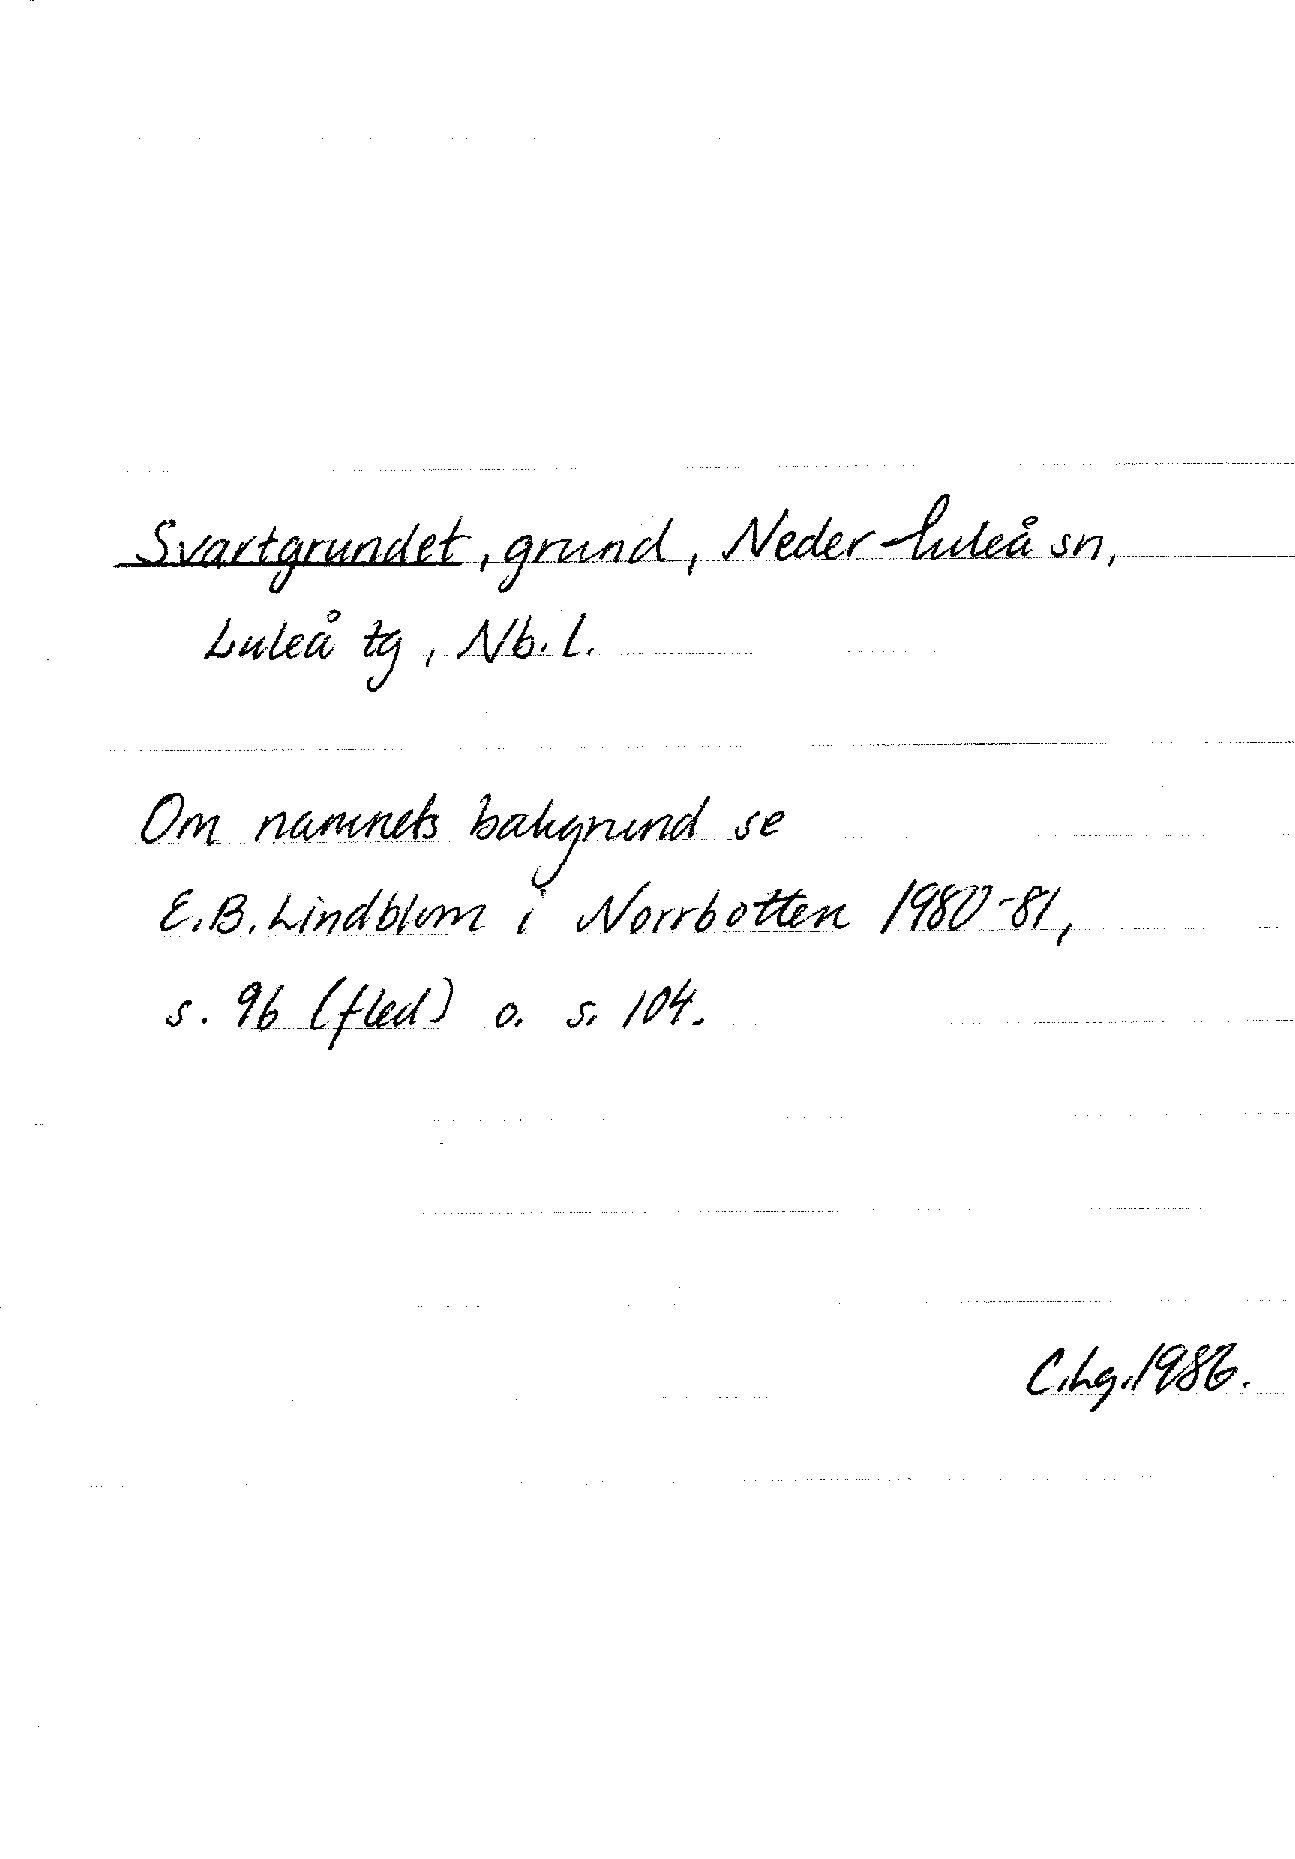 Svartgrundet, grund, Neder-Luleå sn,
Luleå tg, Nb. l.
Om namnets bakgrund se
E.B. Lindblom i Norrbotten 1980-81,
s. 96 (fled) o. s. 104.
C.Lg. 1986.